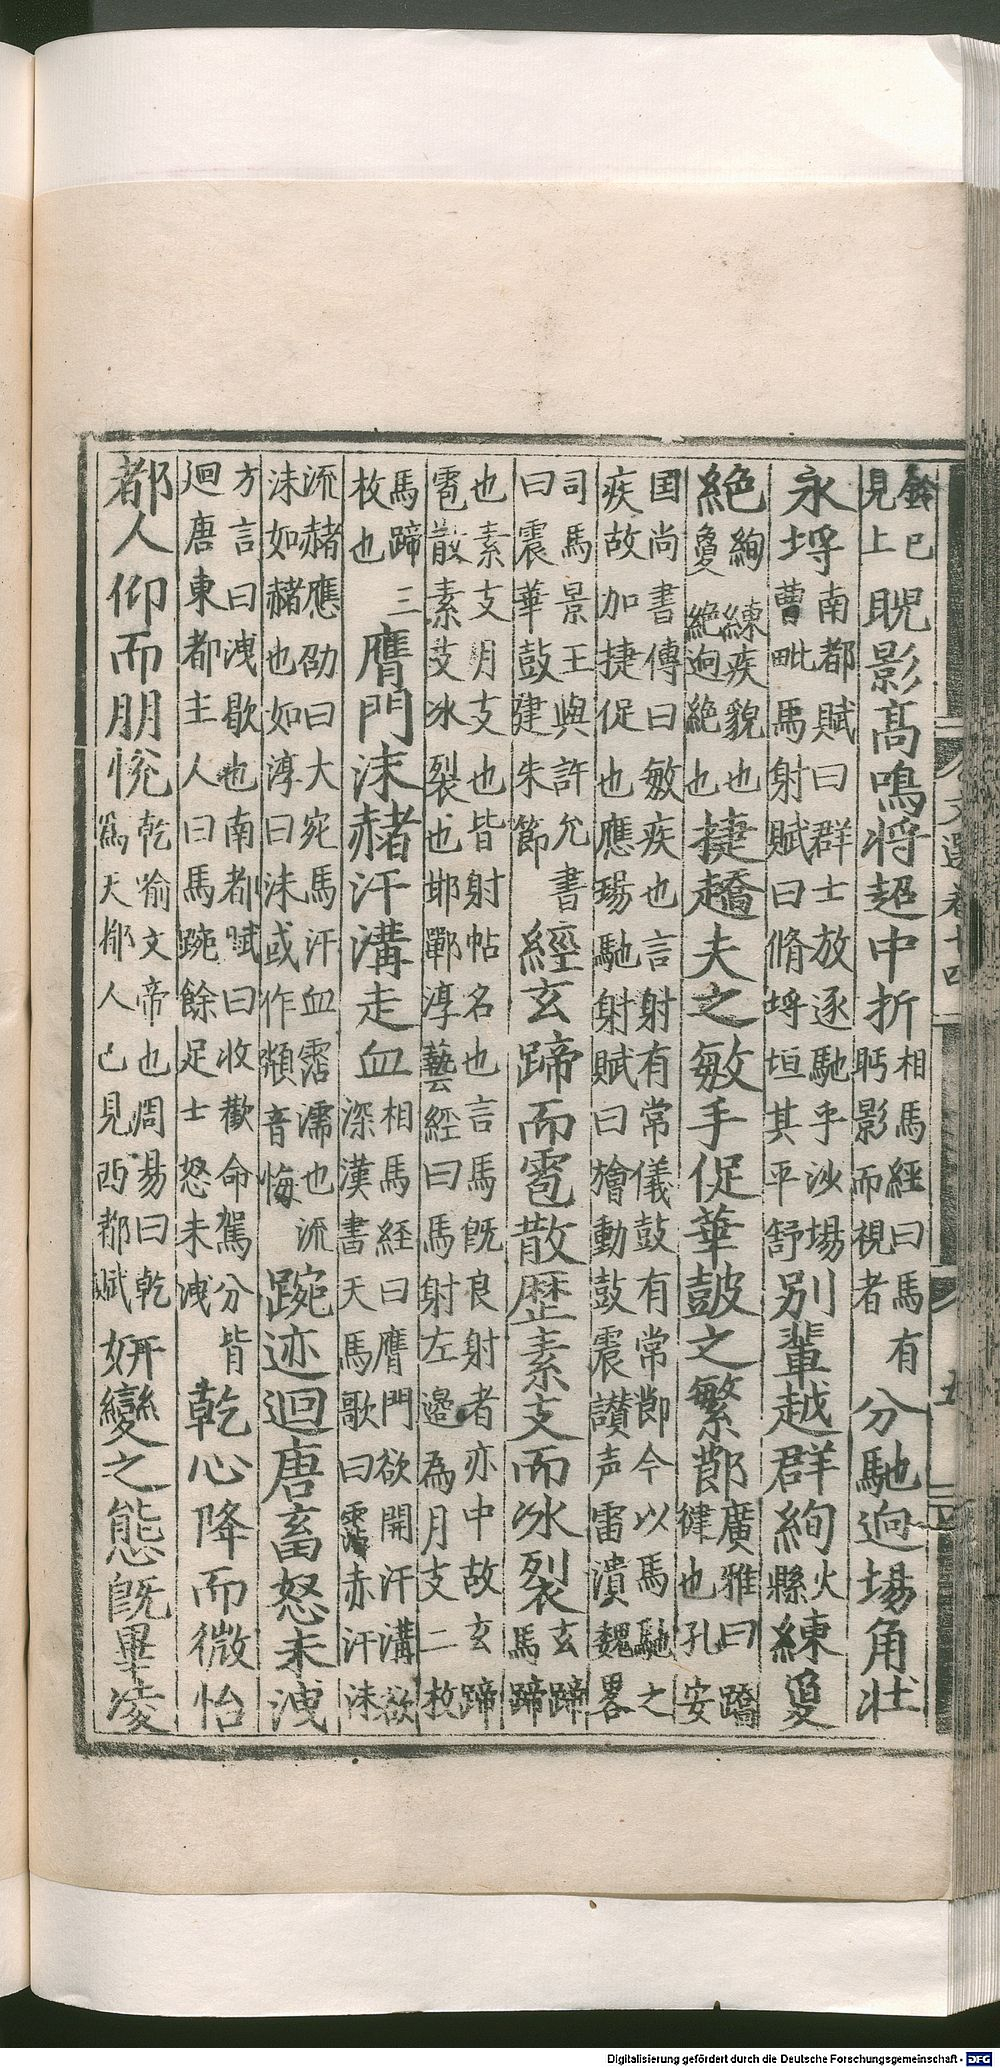 鈴已見上睨影高鳴將超中折相馬經曰馬有眄影而視者分馳逈塲角壯
永埒南都賦曰群士放逐馳乎沙塲曹毗馬射賦曰脩埒垣其平舒別輩越群絢火縣練敻
絶絢練疾貌也敻絶逈絶也捷趫夫之敏手促華鼓之繁節廣雅曰蹻健也孔安
国尚書傳曰敏疾也言射有常儀鼓有常節今以馬馳之疾故加捷促也應瑒馳射賦曰旝動鼓震讃声雷潰魏畧
司馬景王與許允書曰震華鼓建朱節經玄蹄而雹散歷素支而氷裂玄蹄馬蹄
也素支月支也皆射帖名也言馬旣良射者亦中故玄蹄雹散素支氷裂也邯鄲淳藝經曰馬射左邉為月支二枚
馬蹄三枚也膺門沫赭汗溝走血相馬經曰膺門欲開汗溝欲深漢書天馬歌曰霑赤汗沫
流赭應劭曰大宛馬汗血霑濡也流沬如赭也如淳曰沬或作頮音悔踠迹迴唐畜怒未洩
方言曰洩歇也南都賦曰收歡命駕分皆迴唐東都主人曰馬踠餘足士怒未洩乾心降而微怡
都人仰而朋恱乾喻文帝也周易曰乾爲天都人已見西都賦妍變之態旣畢淩
文選卷十四
五
Digitalisierung gefördert durch die Deutsche Forschungsgemeinschaft - DFG